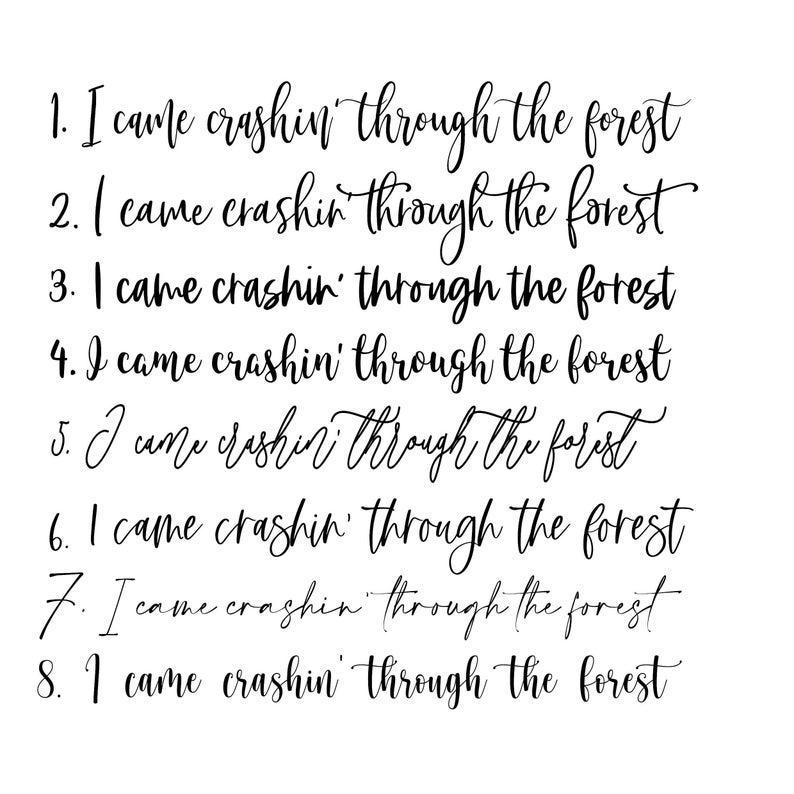 1. I came crashin' through the forest
2. I came crashin' through the forest
3. I came crashin' through the forest
4. I came crashin' through the forest
5. I came crashin' through the forest
6. I came crashin' through the forest
7. I came crashin' through the forest
8. I came crashin' through the forest